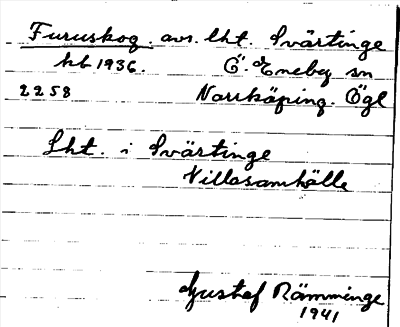 Furuskog. avs. lht. Svärtinge
kb 1936. Ö. Eneby sn
2258 Norrköping. Ögl
Lht. i Svärtinge
Villasamhälle
Gustaf Rämminge
1941